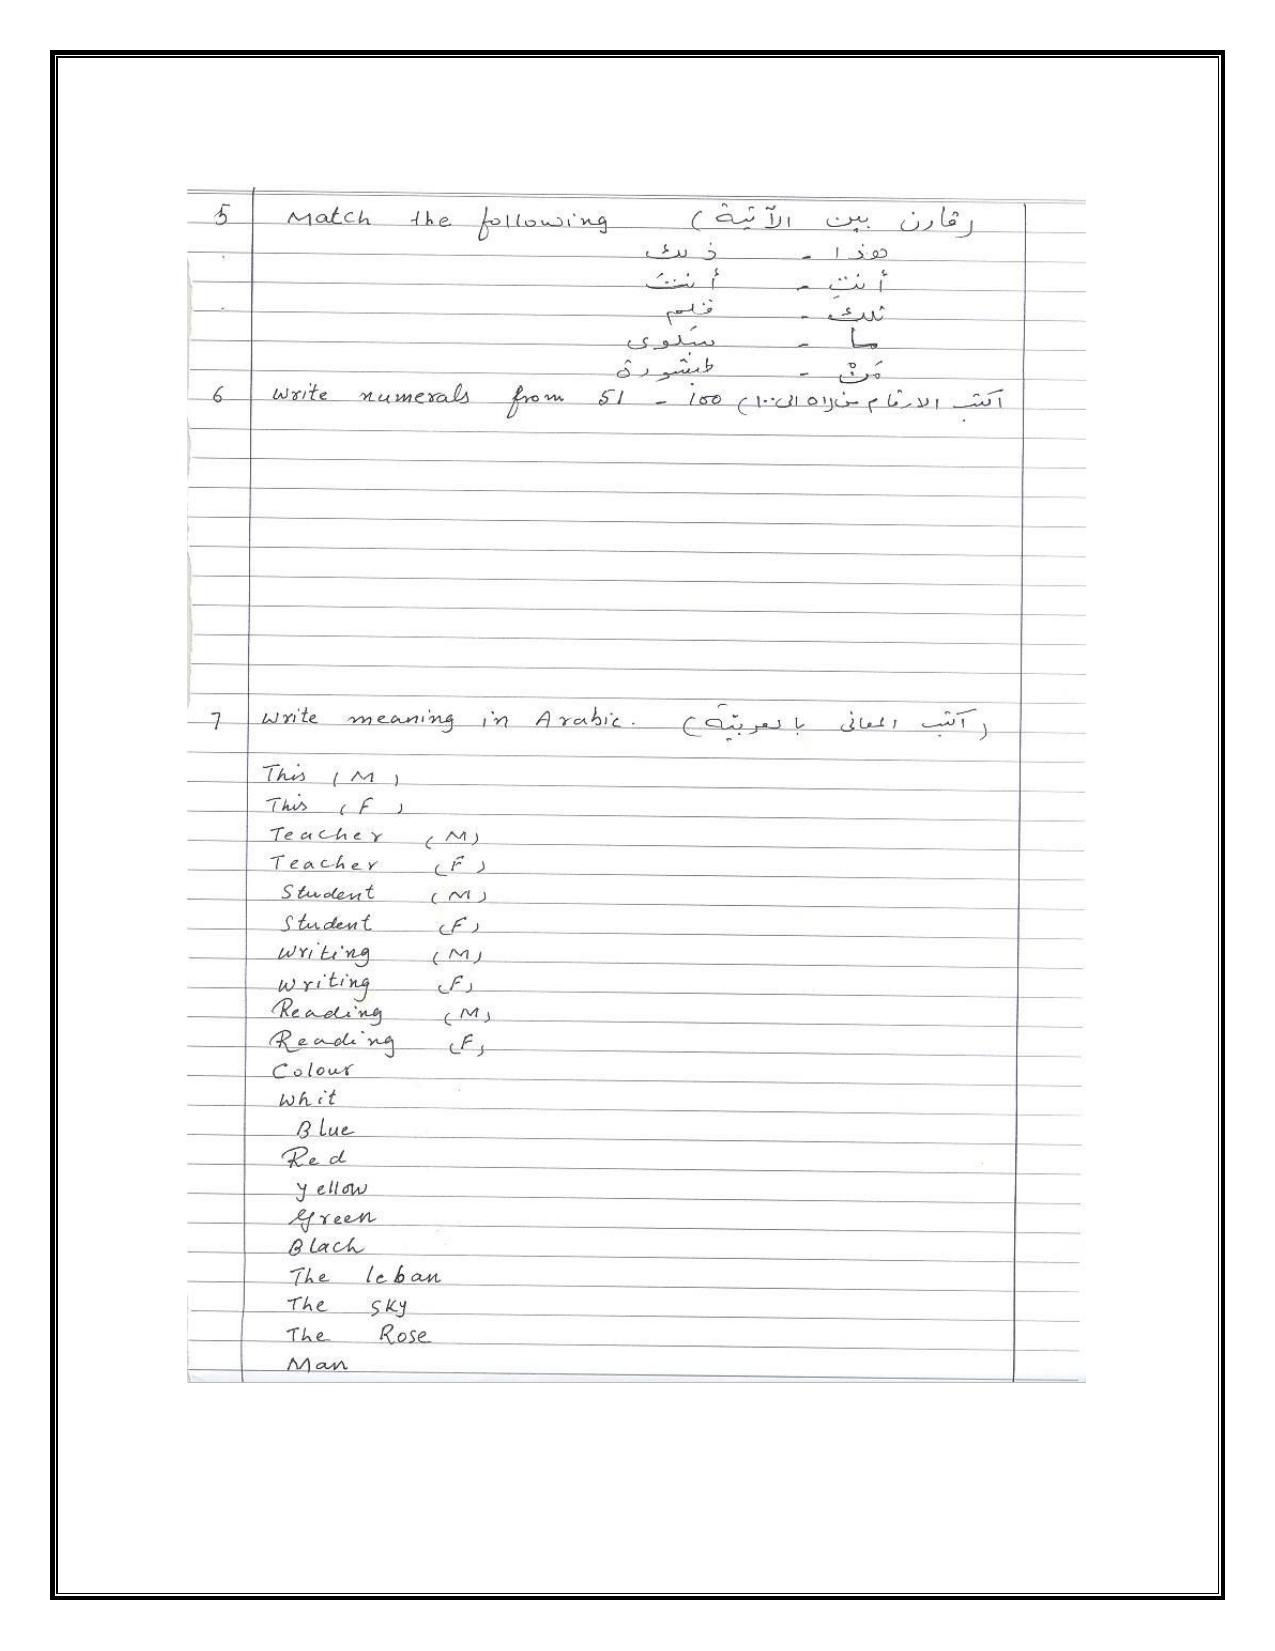 5 Match the following (قارن بين الآتية)
هذا - ذلك
أنتِ - أنتَ
تلك - قلم
ما - سَلوى
مَنْ - طبشورة
6 Write numerals from 51 - 100 (اكتب الارقام من ٥١ الى ١٠٠)
7 Write meaning in Arabic. (اكتب المعانى بالعربيّة)
This (M)
This (F)
Teacher (M)
Teacher (F)
Student (M)
Student (F)
Writing (M)
Writing (F)
Reading (M)
Reading (F)
Colour
Whit
Blue
Red
Yellow
Green
Blach
The leban
The sky
The Rose
Man